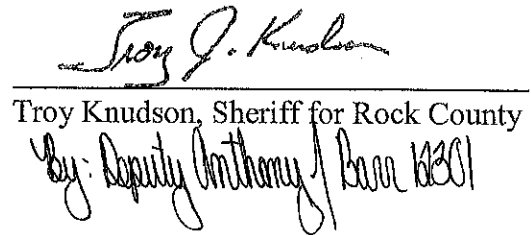 Troy J. Knudson
Troy Knudson, Sheriff for Rock County
By: Deputy Anthony J Barr